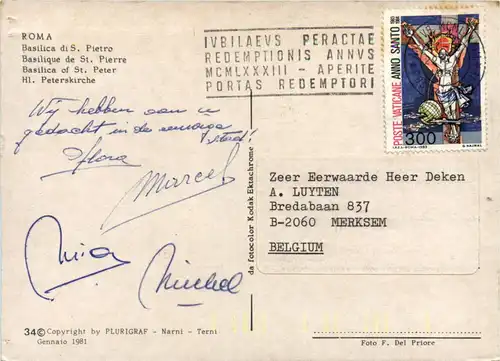 ROMA
Basilica di S. Pietro
Basilique de St. Pierre
Basilica of St. Peter
Hl. Peterskirche
IVBILAEVS PERACTAE
REDEMPTIONIS ANNVS
MCMLXXXIII - APERITE
PORTAS REDEMPTORI
POSTE VATICANE ANNO SANTO 1983 1984
300
Wij hebben aan u
gedacht in de eeuwige
stad!
Flora
Marcel
Mia
Michel
da fotocolor Kodak Ektachrome
Zeer Eerwaarde Heer Deken
A. LUYTEN
Bredabaan 837
B-2060 MERKSEM
BELGIUM
34 © Copyright by PLURIGRAF - Narni - Terni
Gennaio 1981
Foto F. Del Priore